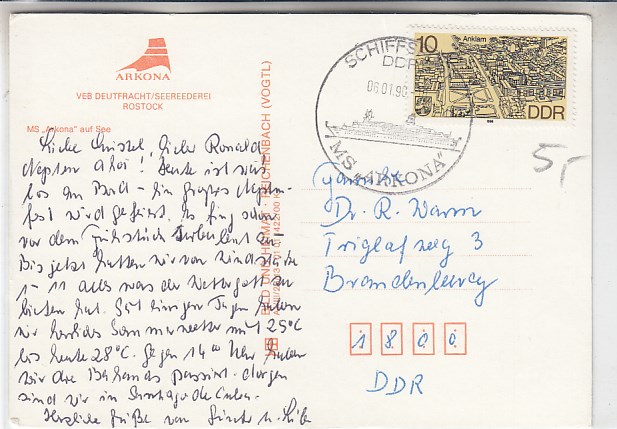 ARKONA
VEB DEUTFRACHT/SEEREEDEREI
ROSTOCK
MS „Arkona" auf See
Liebe Christel, lieber Ronald
Neptun Ahoi! Heute ist was
los an Bord - Ein großes Neptun-
fest wird gefeiert. Es fing schon
vor dem Frühstück turbulent an -
Bis jetzt hatten wir von Windstärke
1 - 11 alles was der Wettergott zu
bieten hat. Seit einigen Tagen haben
wir herrliches Sommerwetter mit 25°C
bis heute 28°C. Gegen 14 00 Uhr haben
wir die Bahamas passiert. Morgen
sind wir in Santiago de Cuba.
Herzliche Grüße von Günter u.
BILD UND HEIMAT REICHENBACH (VOGTL)
SCHIFFS
DDR
06.01.90
MS „ARKONA"
10
Anklam
DDR
5,-
Familie
Dr. R. Warm
Triglafweg 3
Brandenburg
1 8 0 0
DDR